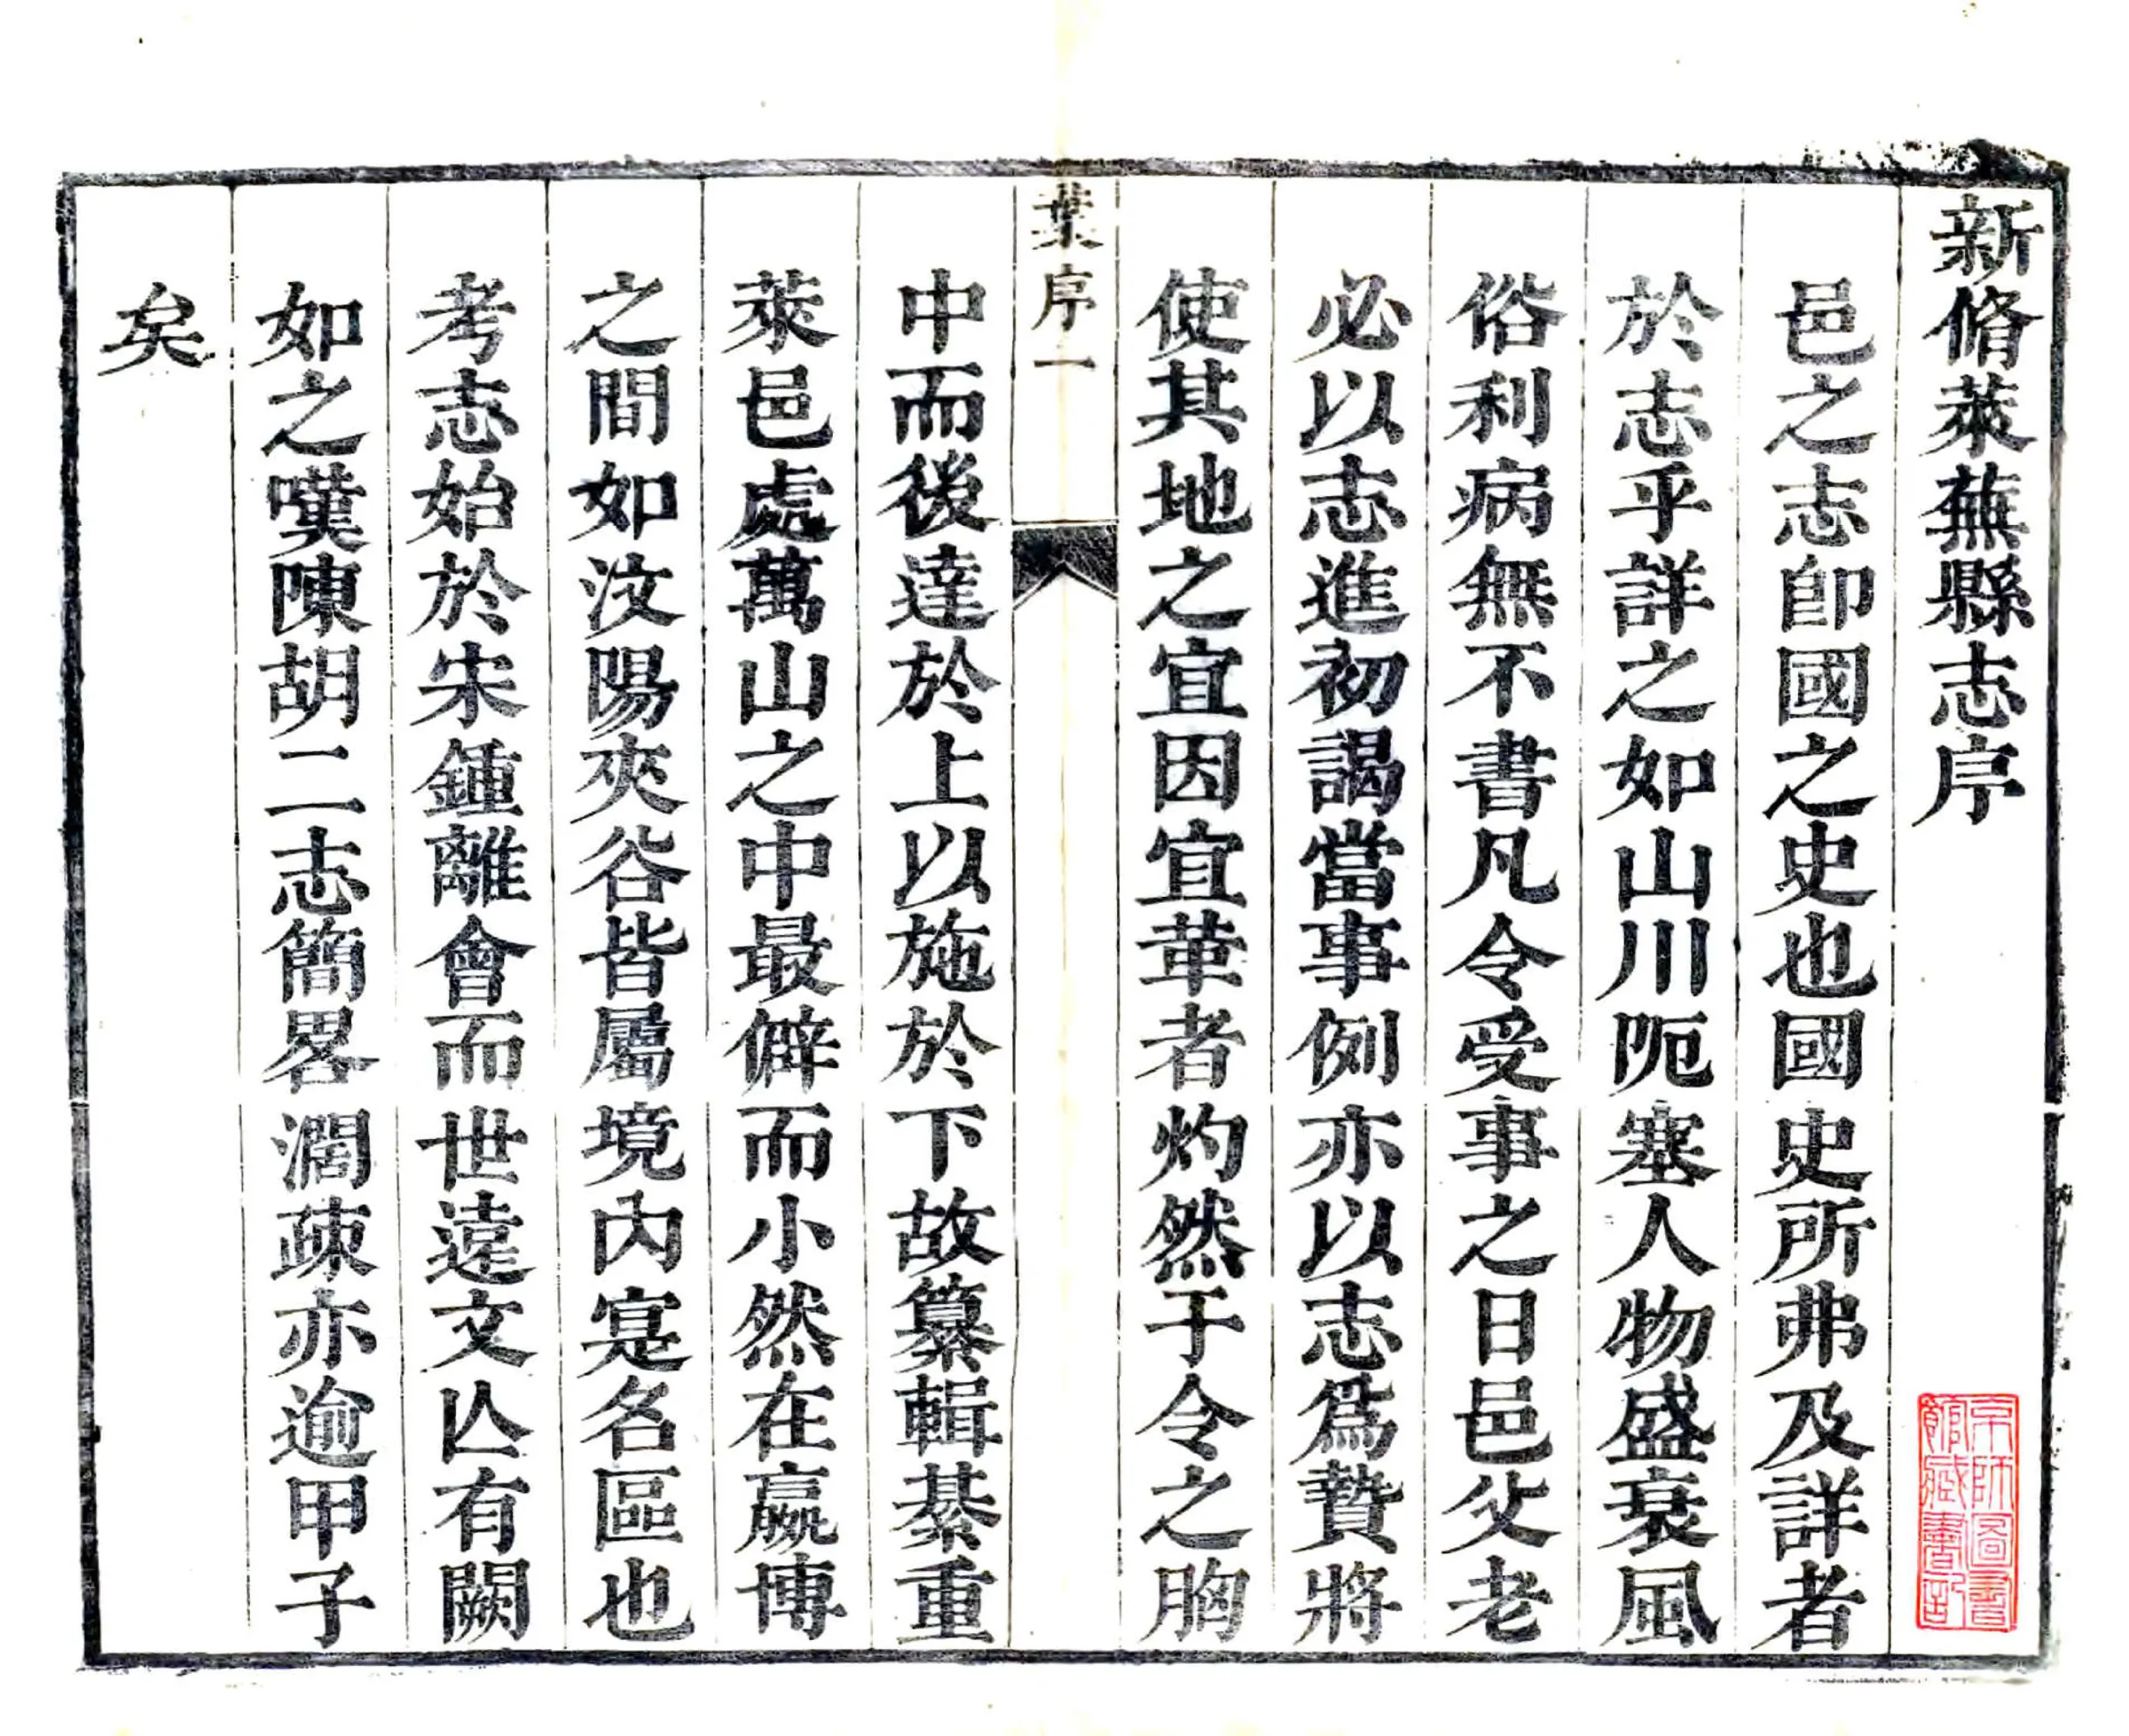 新脩萊蕪縣志序
邑之志卽國之史也國史所弗及詳者
於志乎詳之如山川阨塞人物盛衰風
俗利病無不書凡令受事之日邑父老
必以志進初謁當事例亦以志爲贄將
使其地之宜因宜革者灼然于令之胸
葉序一
中而後達於上以施於下故纂輯綦重
萊邑處萬山之中最僻而小然在嬴博
之間如汶陽夾谷皆屬境內寔名區也
考志始於宋鍾離會而世遠文亾有闕
如之嘆陳胡二志簡畧濶疎亦逾甲子
矣
京師圖書
館藏書記